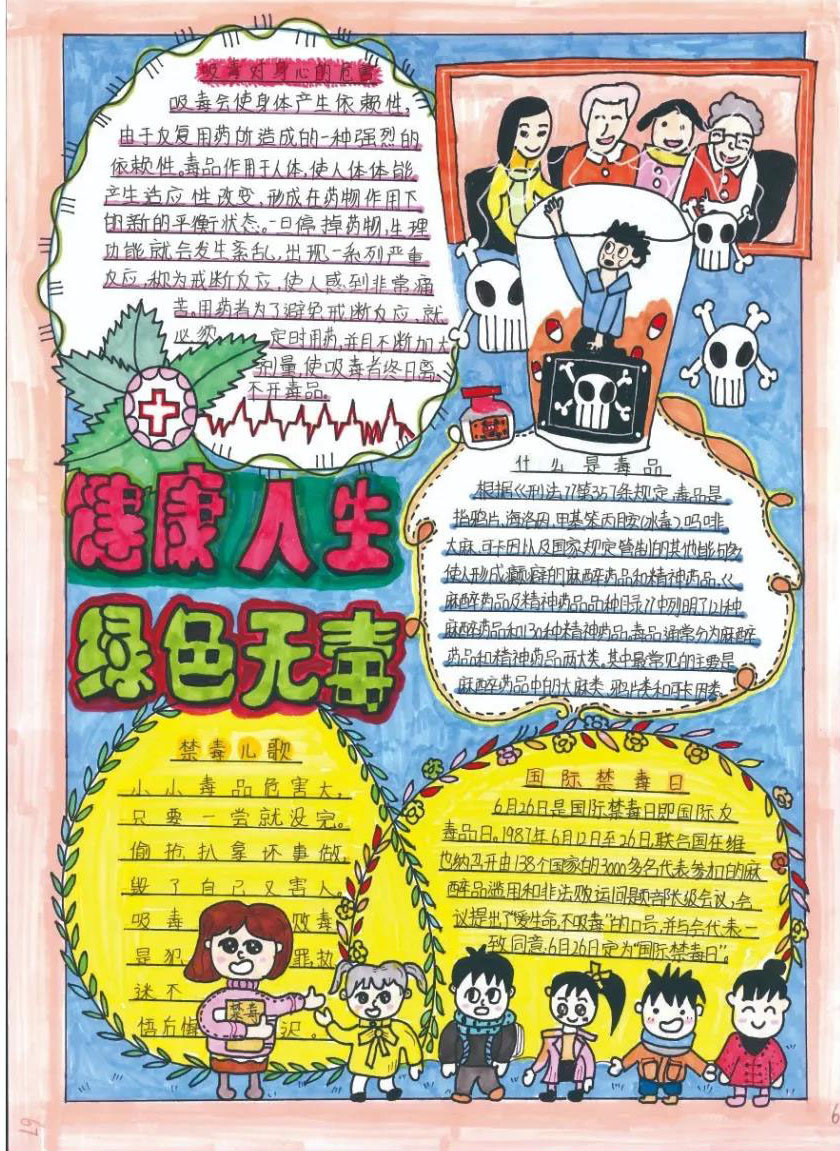 吸毒对身心的危害
吸毒会使身体产生依赖性,
由于反复用药所造成的一种强烈的
依赖性。毒品作用于人体,使人体体能
产生适应性改变,形成在药物作用下
的新的平衡状态。一旦停掉药物,生理
功能就会发生紊乱,出现一系列严重
反应,称为戒断反应,使人感到非常痛
苦。用药者为了避免戒断反应,就
必须 定时用药,并且不断加大
剂量,使吸毒者终日离
不开毒品。
什么是毒品
根据《刑法》第357条规定,毒品是
指鸦片、海洛因、甲基苯丙胺(冰毒)吗啡、
大麻、可卡因以及国家规定管制的其他能够
使人形成瘾癖的麻醉药品和精神药品。《
麻醉药品及精神药品品种目录》中列明了121种
麻醉药品和130种精神药品。毒品通常分为麻醉
药品和精神药品两大类。其中最常见的主要是
麻醉药品中的大麻类、鸦片类和可卡因类。
健康人生
绿色无毒
禁毒儿歌
小小毒品危害大,
只要一尝就没完。
偷抢扒拿坏事做,
毁了自己又害人。
吸毒 败毒
是犯 罪,执
迷不
悟后悔 迟。
禁毒
国际禁毒日
6月26日是国际禁毒日即国际反
毒品日。1987年6月12日至26日,联合国在维
也纳召开由138个国家的3000多名代表参加的麻
醉品滥用和非法败运问题部长级会议,会
议提出了“爱生命,不吸毒”的口号,并与会代表一
致同意,6月26日定为“国际禁毒日”。